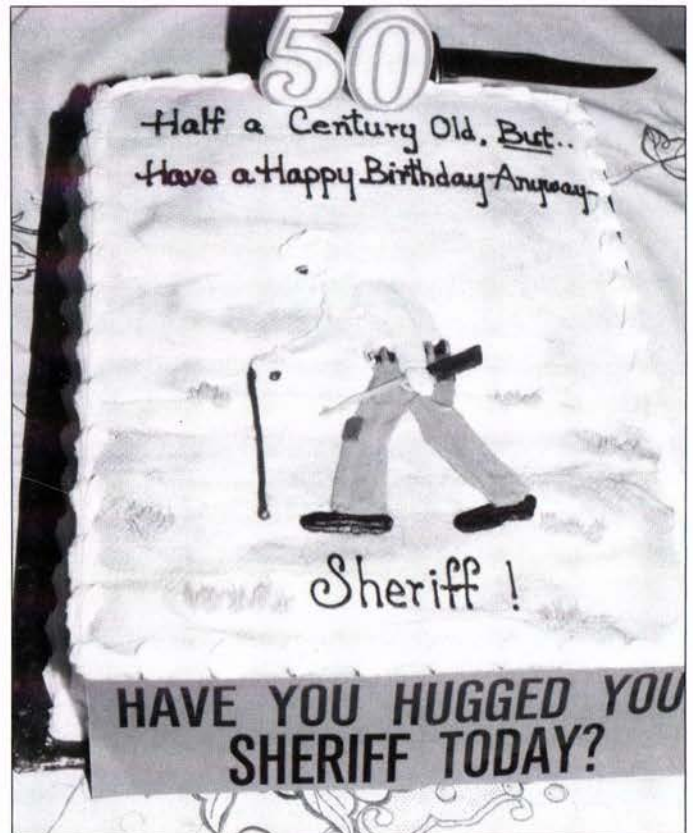 50
Half a Century Old, But..
Have a Happy Birthday-Anyway-
Sheriff !
HAVE YOU HUGGED YOU
SHERIFF TODAY?